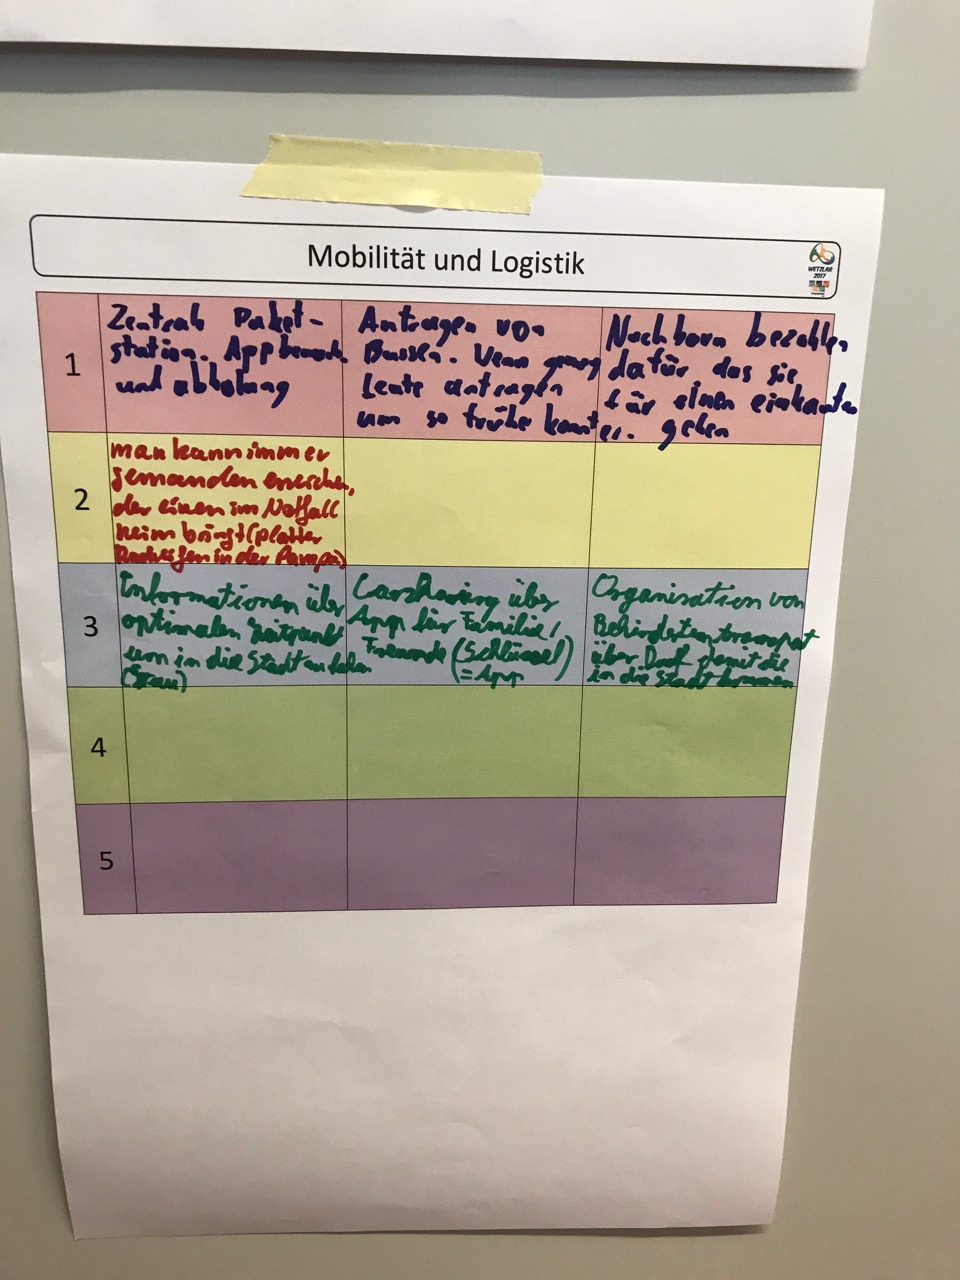 Mobilität und Logistik
WETZLAR
2017
1
Zentrale Paket-
station. App
und abholung
Anfragen von
Bussen. Wenn genug
Leute anfragen
um so früher kommt er.
Nachbarn bezahlen
dafür das sie
für einen einkaufen
gehen
2
man kann immer
jemanden erreichen,
der einen im Notfall
heim bringt (platter
Radreifen in der Pampa)
3
Informationen über
optimalen Zeitpunkt
um in die Stadt zu fahren
(Stau)
Carsharing über
App für Familie/
Freunde (Schlüssel)
= App
Organisation von
Behindertentransport
über Dorf damit die
in die Stadt kommen
4
5